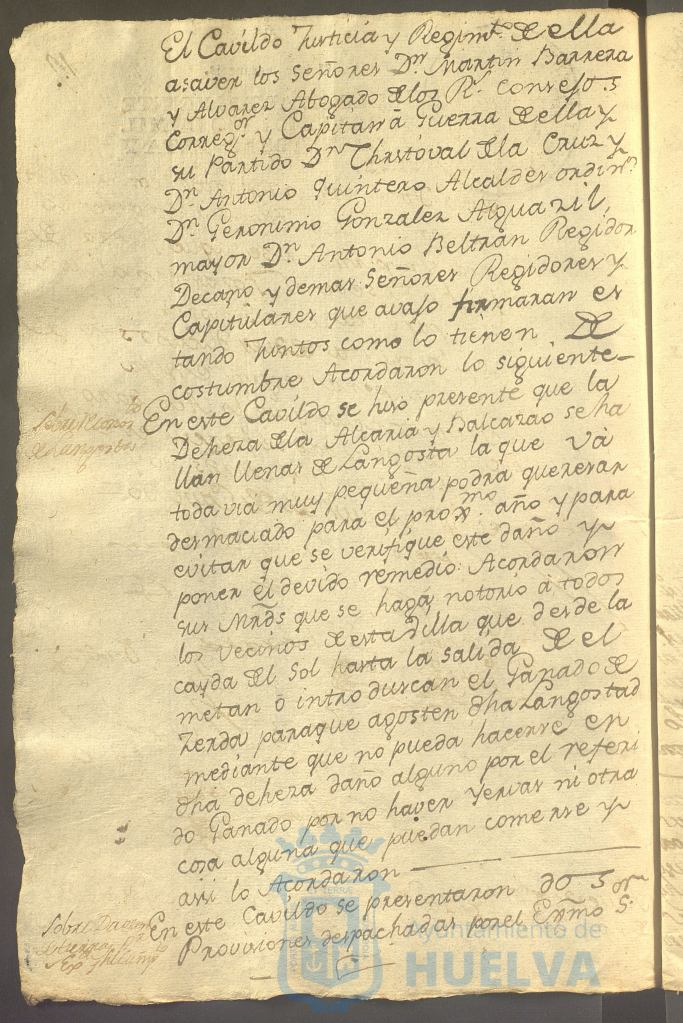 El Cavildo Justicia y Regimto. de ella
asaver los Señores Dn. Martin Barrera
y Alvarez Abogado delos Rs. consejos
Corregor. y Capitan a Guerra de ella y
su Partido Dn Christoval de la Cruz y
Dn. Antonio Quintero Alcaldes ordins.
Dn. Geronimo Gonzalez Alguazil,
mayor Dn. Antonio Beltran Regidor
Decano y demas Señores Regidores y
Capitulares que avajo firmaran es
tando Juntos como lo tienen de
costumbre Acordaron lo siguiente
En este Cavildo se hiso presente que la
Deheza de la Alcaria y Balcazao se ha
llan llenas de Langosta la que vá
toda via muy pequeña podrá queresar
desmaciado para el proxmo. año y para
evitar que se verifique este daño y
poner el devido remedio: Acordaron
sus Mrds que se haga notorio á todos
los vecinos de esta Villa que desde la
cayda del Sol hasta la salida de el
metan ó introduscan el Ganado de
Zerda paraque agosten dha Langosta
mediante que no pueda hacerse en
dha deheza daño alguno por el referi
do Ganado por no haver yervas ni otra
cosa alguna que puedan comerse y
asi lo Acordaron
Sobre
En este Cavildo se presentaron dos
Provisiones despachadas por el Exmo Sor.
Sobre
Ayuntamiento de
HUELVA